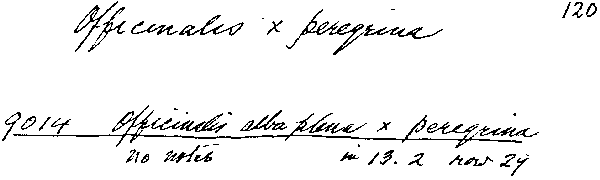 Officinalis x peregrina 120
9014 Officinalis alba plena x peregrina
no notes in 13. 2 row 29